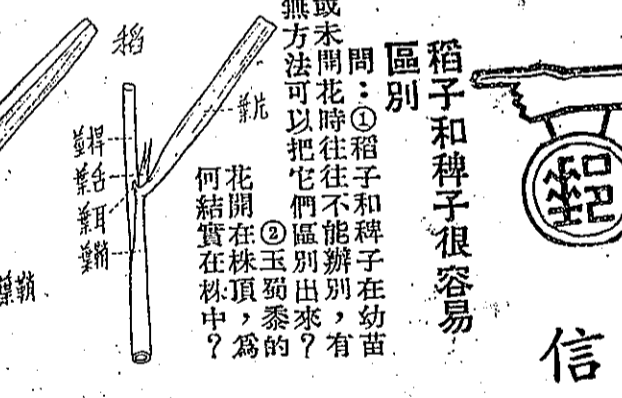 信
稻子和稗子很容易
區別
問：①稻子和稗子在幼苗
或未開花時往往不能辦別，有
無方法可以把它們區別出來？
②玉蜀黍的
花開在株頂，爲
何結實在株中？
稻
葉片
莖桿
葉舌
葉耳
葉鞘
葉鞘